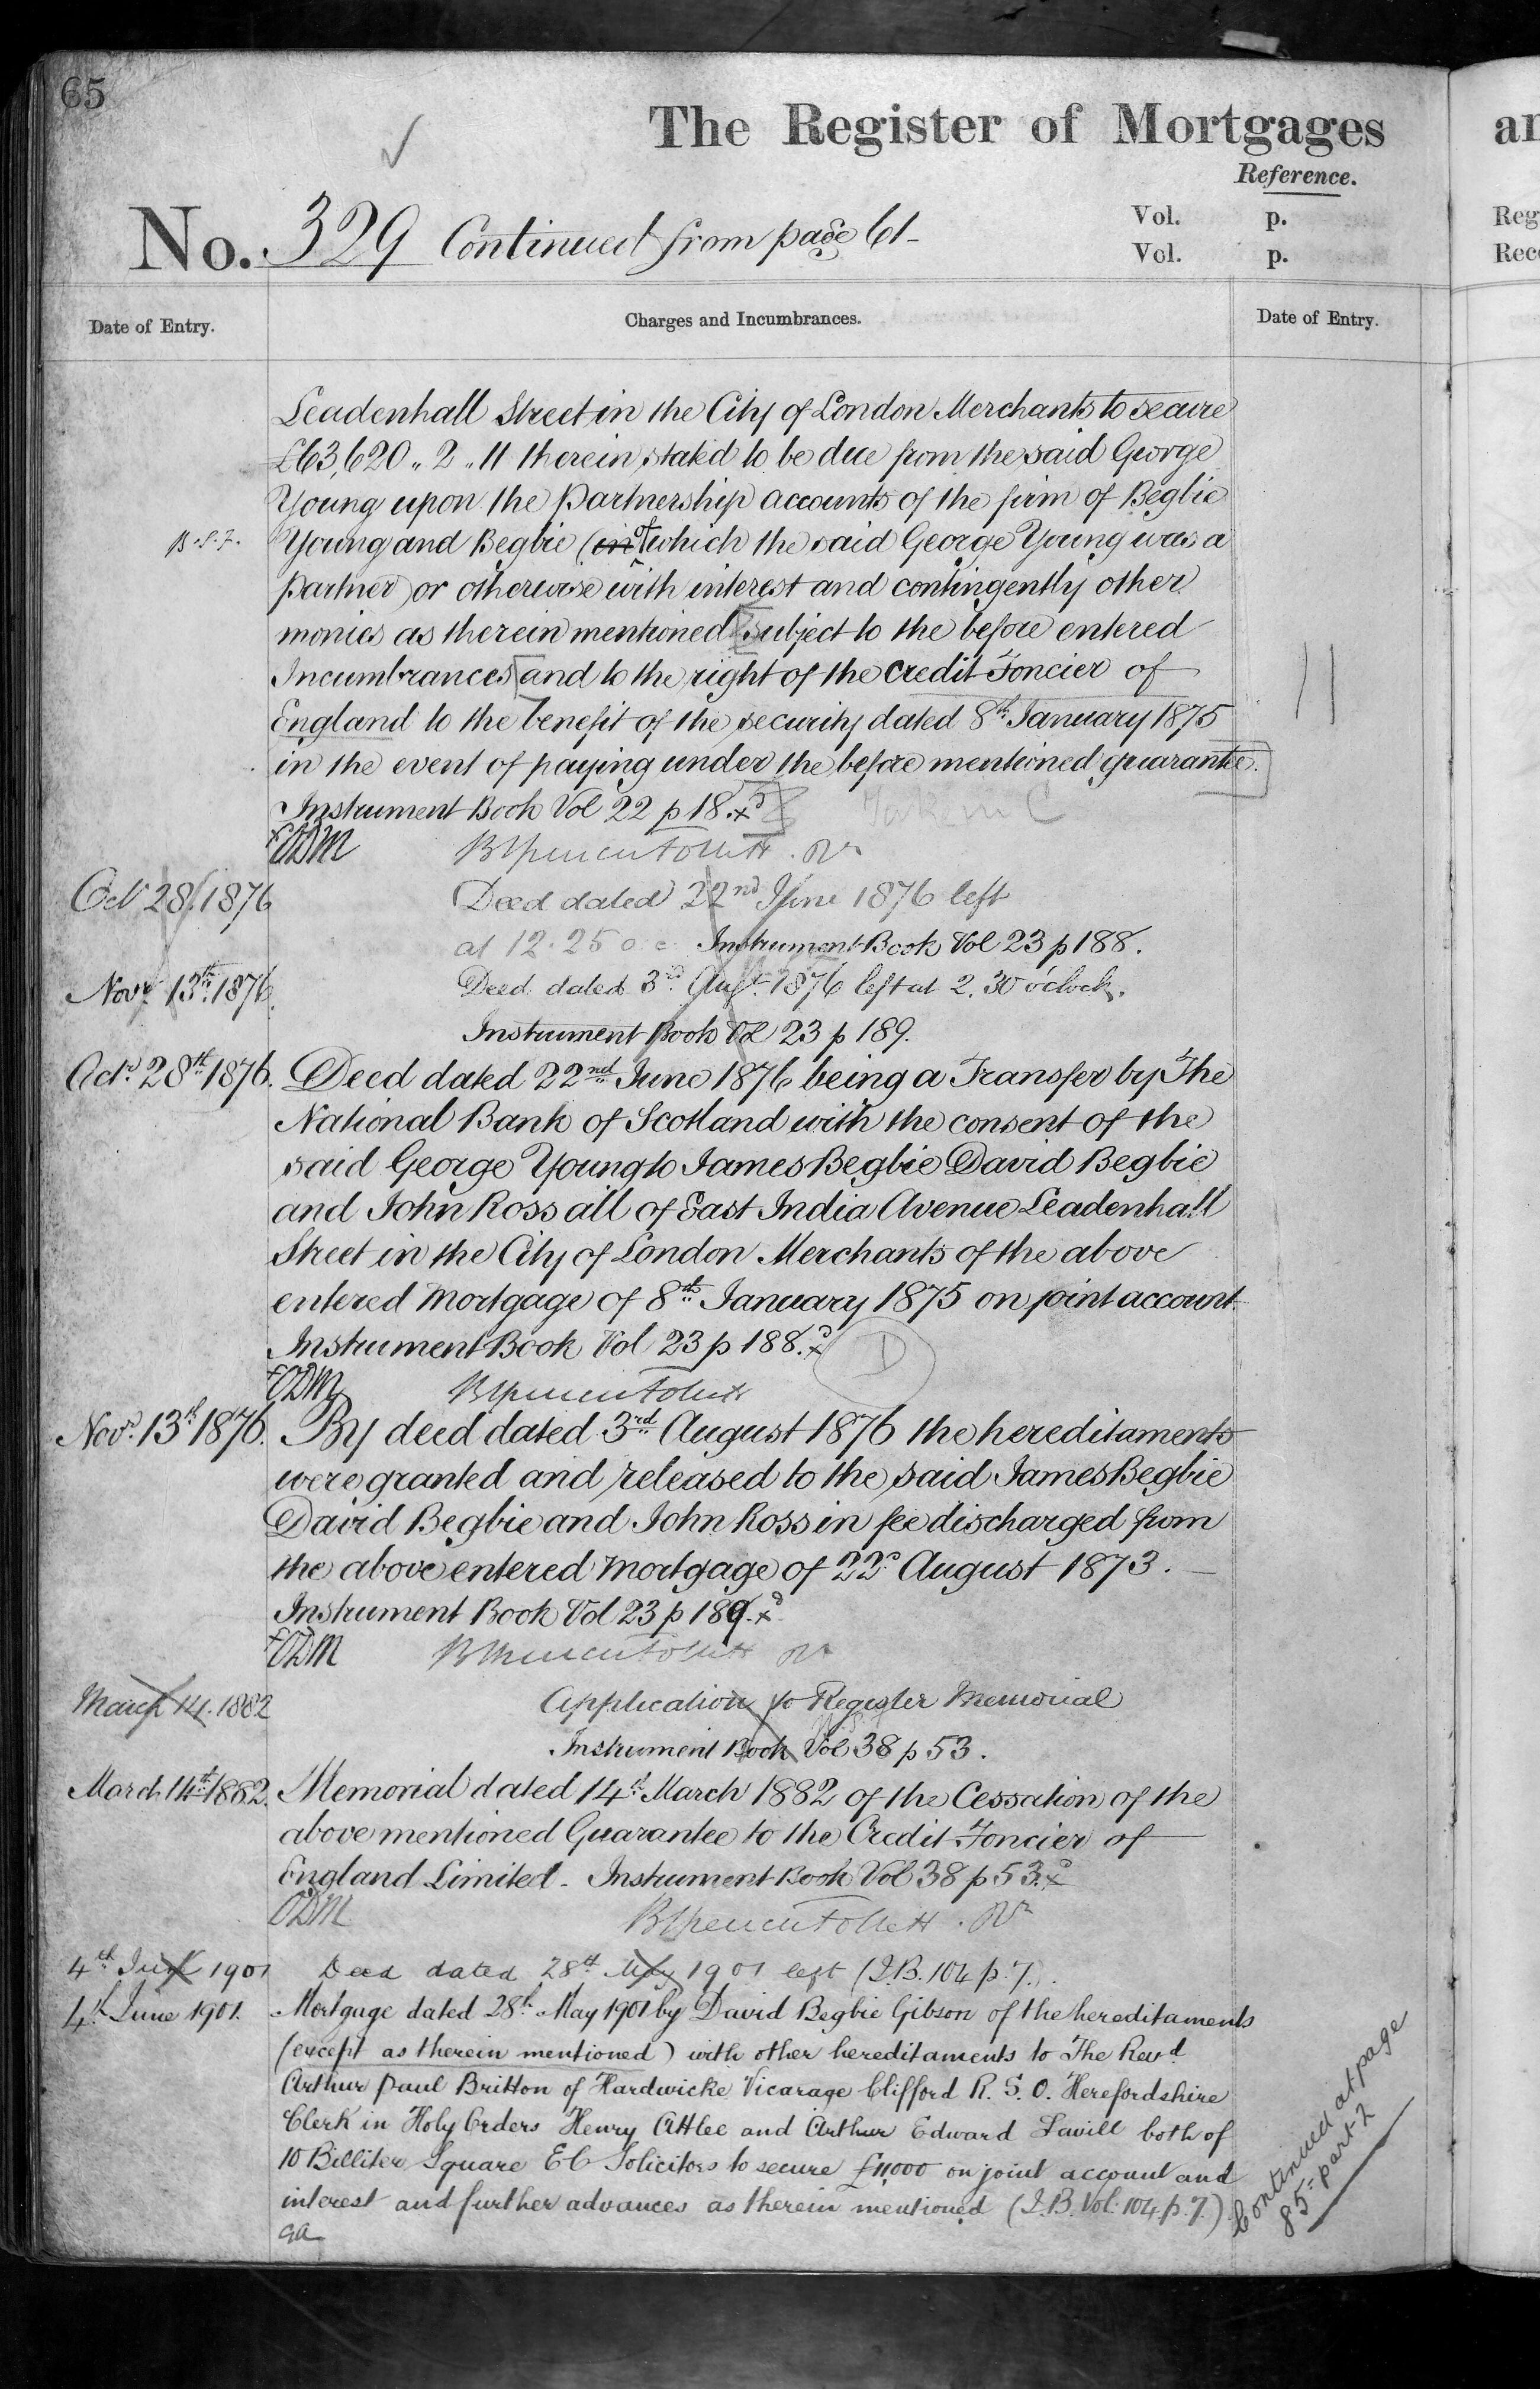 65
The Register of Mortgages
Reference.
No. 329 Continued from page 61-
Vol. p.
Vol. p.
Date of Entry.
Charges and Incumbrances.
Date of Entry.
Leadenhall Street in the City of London Merchants to secure
£63,620 „ 2 „ 11 therein stated to be due from the said George
Young upon the Partnership accounts of the firm of Begbie
B.S.F. Young and Begbie (in of which the said George Young was a
partner) or otherwise with interest and contingently other
monies as therein mentioned [subject to the before entered
Incumbrances] and to the right of the Credit Foncier of
England to the benefit of the security dated 8th January 1875
in the event of paying under the before mentioned guarantee.
Instrument Book Vol 22 p 18. xd
ODM
Oct 28. 1876 Deed dated 22nd June 1876 left
at 12.25 o.c. Instrument Book Vol 23 p 188.
Novr 13th 1876. Deed dated 3rd Augt 1876 left at 2.30 o'clock.
Instrument Book Vol 23 p 189.
Octr 28th 1876. Deed dated 22nd June 1876 being a Transfer by The
National Bank of Scotland with the consent of the
said George Young to James Begbie David Begbie
and John Ross all of East India Avenue Leadenhall
Street in the City of London Merchants of the above
entered Mortgage of 8th January 1875 on joint account.
Instrument Book Vol 23 p 188. xd D
ODM
Novr 13th 1876. By deed dated 3rd August 1876 the hereditaments
were granted and released to the said James Begbie
David Begbie and John Ross in fee discharged from
the above entered Mortgage of 22d August 1873. —
Instrument Book Vol 23 p 189. xd
ODM
March 14. 1882 Application to Register Memorial
Instrument Book Vol 38 p 53.
March 14th 1882. Memorial dated 14th March 1882 of the Cessation of the
above mentioned Guarantee to the Credit Foncier of
England Limited - Instrument Book Vol 38 p 53. xd
ODM
4th June 1901 Deed dated 28th May 1901 left (I.B. 104 p. 7.).
4th June 1901. Mortgage dated 28th May 1901 by David Begbie Gibson of the hereditaments
(except as therein mentioned) with other hereditaments to The Revd
Arthur Paul Britton of Hardwicke Vicarage Clifford R. S. O. Herefordshire
Clerk in Holy Orders Henry Attlee and Arthur Edward Savill both of
10 Billiter Square EC Solicitors to secure £11,000 on joint account and
interest and further advances as therein mentioned (I.B. Vol. 104. p. 7.)
Continued at page
85 - part 2